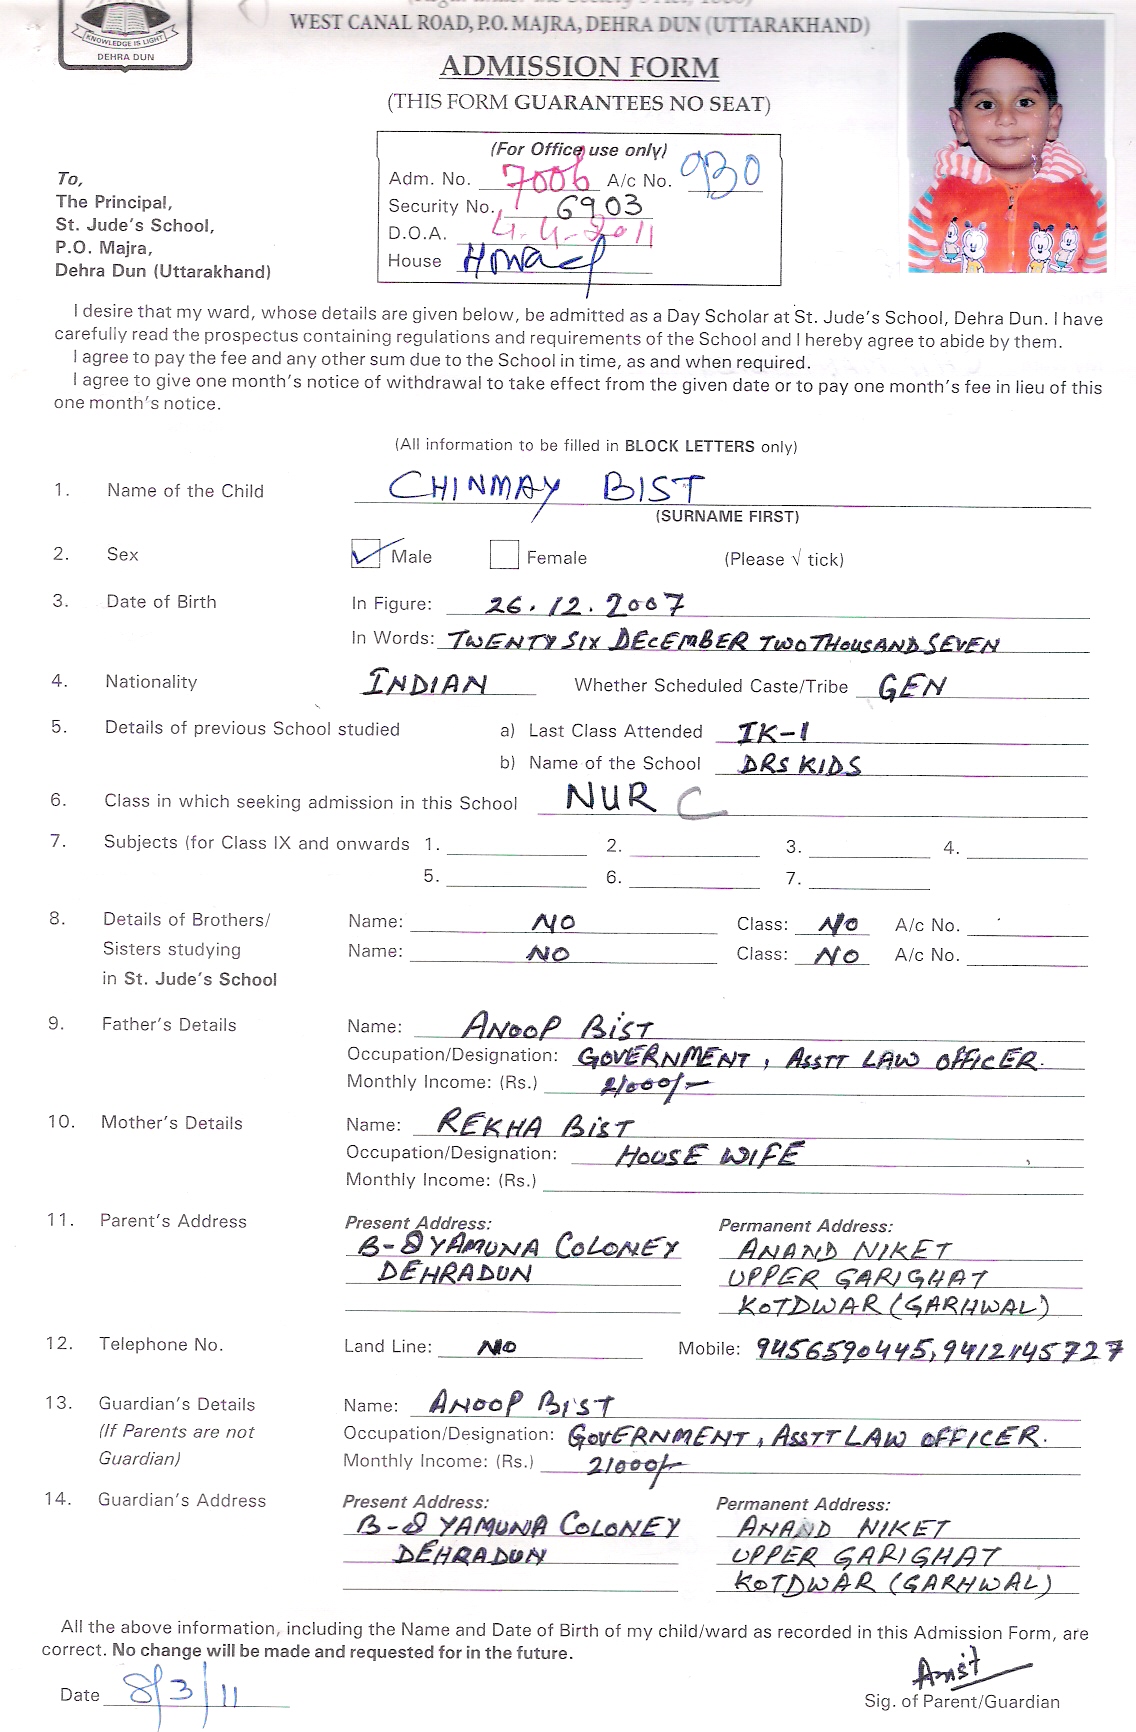 KNOWLEDGE IS LIGHT
DEHRA DUN
WEST CANAL ROAD, P.O. MAJRA, DEHRA DUN (UTTARAKHAND)
ADMISSION FORM
(THIS FORM GUARANTEES NO SEAT)
(For Office use only)
Adm. No. 7006 A/c No. 930
Security No. 6903
D.O.A. 4-4-2011
House
To,
The Principal,
St. Jude's School,
P.O. Majra,
Dehra Dun (Uttarakhand)
I desire that my ward, whose details are given below, be admitted as a Day Scholar at St. Jude's School, Dehra Dun. I have
carefully read the prospectus containing regulations and requirements of the School and I hereby agree to abide by them.
I agree to pay the fee and any other sum due to the School in time, as and when required.
I agree to give one month's notice of withdrawal to take effect from the given date or to pay one month's fee in lieu of this
one month's notice.
(All information to be filled in BLOCK LETTERS only)
1. Name of the Child CHINMAY BIST
(SURNAME FIRST)
2. Sex ✓ Male Female (Please √ tick)
3. Date of Birth In Figure: 26.12.2007
In Words: TWENTY SIX DECEMBER TWO THOUSAND SEVEN
4. Nationality INDIAN Whether Scheduled Caste/Tribe GEN
5. Details of previous School studied a) Last Class Attended IK-1
b) Name of the School DRS KIDS
6. Class in which seeking admission in this School NUR C
7. Subjects (for Class IX and onwards 1. 2. 3. 4.
5. 6. 7.
8. Details of Brothers/ Name: NO Class: NO A/c No.
Sisters studying Name: NO Class: NO A/c No.
in St. Jude's School
9. Father's Details Name: ANOOP BIST
Occupation/Designation: GOVERNMENT, ASSTT LAW OFFICER.
Monthly Income: (Rs.) 21000/-
10. Mother's Details Name: REKHA BIST
Occupation/Designation: HOUSE WIFE
Monthly Income: (Rs.)
11. Parent's Address Present Address: Permanent Address:
B-8 YAMUNA COLONEY ANAND NIKET
DEHRADUN UPPER GARIGHAT
KOTDWAR (GARHWAL)
12. Telephone No. Land Line: NO Mobile: 9456590445, 9412145727
13. Guardian's Details Name: ANOOP BIST
(If Parents are not Occupation/Designation: GOVERNMENT, ASSTT LAW OFFICER.
Guardian) Monthly Income: (Rs.) 21000/-
14. Guardian's Address Present Address: Permanent Address:
B-8 YAMUNA COLONEY ANAND NIKET
DEHRADUN UPPER GARIGHAT
KOTDWAR (GARHWAL)
All the above information, including the Name and Date of Birth of my child/ward as recorded in this Admission Form, are
correct. No change will be made and requested for in the future.
Date 8/3/11
Sig. of Parent/Guardian